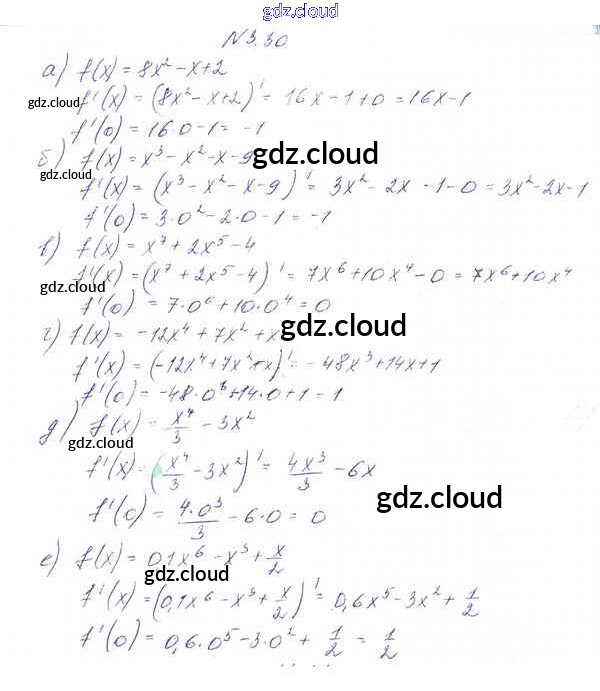 gdz.cloud
N 3.30
а) f(x) = 8x² - x + 2
f'(x) = (8x² - x + 2)' = 16x - 1 + 0 = 16x - 1
gdz.cloud
f'(0) = 16·0 - 1 = -1
б) f(x) = x³ - x² - x - 9
gdz.cloud
gdz.cloud
f'(x) = (x³ - x² - x - 9)' = 3x² - 2x - 1 - 0 = 3x² - 2x - 1
f'(0) = 3·0² - 2·0 - 1 = -1
в) f(x) = x⁷ + 2x⁵ - 4
f'(x) = (x⁷ + 2x⁵ - 4)' = 7x⁶ + 10x⁴ - 0 = 7x⁶ + 10x⁴
gdz.cloud
f'(0) = 7·0⁶ + 10·0⁴ = 0
г) f(x) = -12x⁴ + 7x² + x
gdz.cloud
f'(x) = (-12x⁴ + 7x² + x)' = -48x³ + 14x + 1
f'(0) = -48·0³ + 14·0 + 1 = 1
д) f(x) = x⁴/3 - 3x²
gdz.cloud
f'(x) = (x⁴/3 - 3x²)' = 4x³/3 - 6x
gdz.cloud
f'(0) = 4·0³/3 - 6·0 = 0
е) f(x) = 0,1x⁶ - x³ + x/2
gdz.cloud
f'(x) = (0,1x⁶ - x³ + x/2)' = 0,6x⁵ - 3x² + 1/2
f'(0) = 0,6·0⁵ - 3·0² + 1/2 = 1/2
gdz.cloud